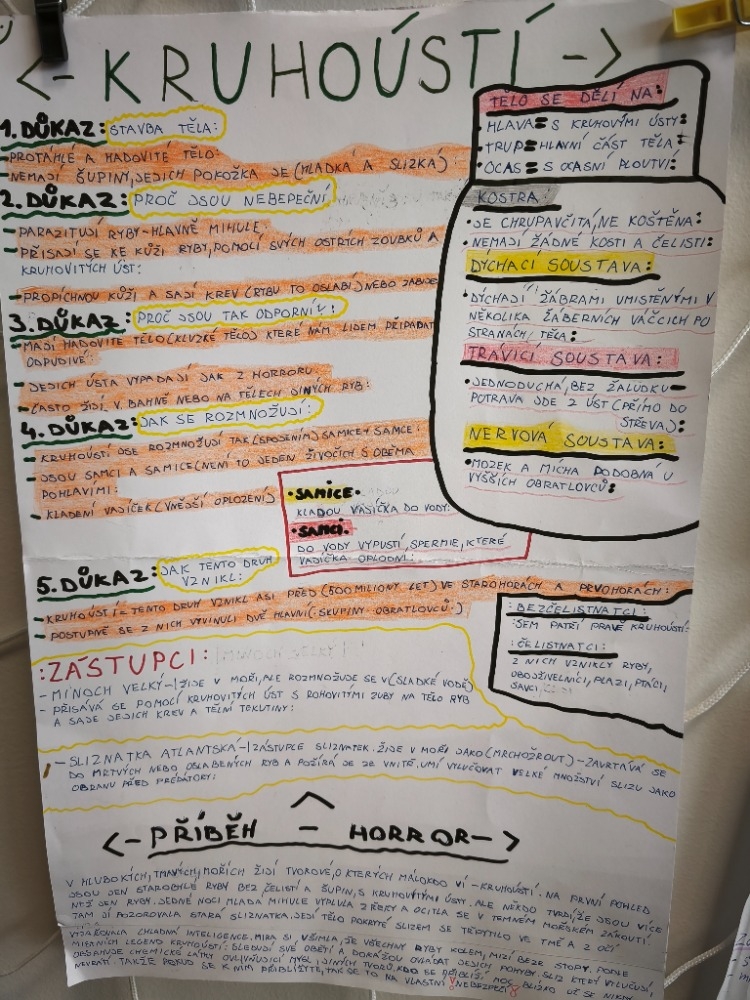 <- KRUHOÚSTÍ ->
1. DŮKAZ: STAVBA TĚLA:
- PROTÁHLÉ A HADOVITÉ TĚLO
- NEMAJÍ ŠUPINY, JEJICH POKOŽKA JE (HLADKÁ A SLIZKÁ)
2. DŮKAZ: PROČ JSOU NEBEPEČNÍ
- PARAZITUJÍ RYBY-HLAVNĚ MIHULE.
- PŘISAJÍ SE KE KŮŽI RYBY, POMOCÍ SVÝCH OSTRÝCH ZOUBKŮ A
KRUHOVITÝCH ÚST:
- PROPÍCHNOU KŮŽI A SAJÍ KREV (RYBU TO OSLABÍ) NEBO
3. DŮKAZ: PROČ JSOU TAK ODPORNÍ:
- MAJÍ HADOVITÉ TĚLO (KLUZKÉ TĚLO) KTERÉ NÁM LIDEM PŘIPADAT
ODPUDIVÉ:
- JEJICH ÚSTA VYPADAJÍ JAK Z HORRORU.
- ČASTO ŽIJÍ V BAHNĚ NEBO NA TĚLECH JINÝCH RYB:
4. DŮKAZ: JAK SE ROZMNOŽUJÍ:
- KRUHOÚSTÍ JSE ROZMNOŽUJÍ TAK (SPOJENÍM) SAMICE+ SAMCE:
- JSOU SAMCI A SAMICE (NENÍ TO JEDEN ŽIVOČICH S OBĚMA
POHLAVÍMI:
- KLADENÍ VAJÍČEK (VNĚJŠÍ OPLOZENÍ)
• SAMICE •
KLADOU VAJÍČKA DO VODY:
• SAMCI.
DO VODY VYPUSTÍ, SPERMIE, KTERÉ
VAJÍČKA OPLODNÍ:
5. DŮKAZ: JAK TENTO DRUH
VZNIKL:
- KRUHOÚSTÍ = TENTO DRUH VZNIKL ASI PŘED (500 MILIONY LET) VE STAROHORÁCH A PRVOHORÁCH:
- POSTUPNĚ SE Z NICH VYVINULI DVĚ HLAVNÍ (SKUPINY OBRATLOVCŮ:)
TĚLO SE DĚLÍ NA:
• HLAVA= S KRUHOVÝMI ÚSTY:
• TRUP= HLAVNÍ ČÁST TĚLA:
• OCAS= S OCASNÍ PLOUTVÍ:
KOSTRA:
• JE CHRUPAVČITÁ, NE KOŠTĚNÁ:
• NEMAJÍ ŽÁDNÉ KOSTI A ČELISTI:
DÝCHACÍ SOUSTAVA:
• DÝCHAJÍ ŽÁBRAMI UMÍSTĚNÝMI V
NĚKOLIKA ŽÁBERNÍCH VÁČCÍCH PO
STRANÁCH TĚLA:
TRÁVICÍ SOUSTAVA:
• JEDNODUCHÁ, BEZ ŽALUDKU-
POTRAVA JDE Z ÚST (PŘÍMO DO
STŘEVA):
NERVOVÁ SOUSTAVA:
• MOZEK A MÍCHA PODOBNÁ U
VYŠŠÍCH OBRATLOVCŮ:
: BEZČELISTNATCI:
SEM PATŘÍ PRÁVĚ KRUHOÚSTÍ:
: ČELISTNATCI:
Z NICH VZNIKLY RYBY,
OBOJŽIVELNÍCI, PLAZI, PTÁCI,
SAVCI
:ZÁSTUPCI:
- MINOCH VELKÝ- ŽIJE V MOŘI, ALE ROZMNOŽUJE SE V (SLADKÉ VODĚ)
- PŘISÁVÁ SE POMOCÍ KRUHOVITÝCH ÚST S ROHOVITÝMI ZUBY NA TĚLO RYB
A SAJE JEJICH KREV A TĚLNÍ TEKUTINY:
- SLIZNATKA ATLANTSKÁ- ZÁSTUPCE SLIZNATEK. ŽIJE V MOŘI JAKO (MRCHOŽROUT) - ZAVRTÁVÁ SE
DO MRTVÝCH NEBO OSLABENÝCH RYB A POŽÍRÁ JE ZE VNITŘ. UMÍ VYLUČOVAT VELKÉ MNOŽSTVÍ SLIZU JAKO
OBRANU PŘED PREDÁTORY:
<- PŘÍBĚH - HORROR ->
V HLUBOKÝCH, TMAVÝCH, MOŘÍCH ŽIJÍ TVOROVÉ, O KTERÝCH MÁLOKDO VÍ - KRUHOÚSTÍ. NA PRVNÍ POHLED
JSOU JEN STAROBYLÉ RYBY BEZ ČELISTÍ A ŠUPIN, S KRUHOVÝMI ÚSTY. ALE NĚKDO TVRDÍ, ŽE JSOU VÍCE
NEŽ JEN RYBY. JEDNÉ NOCI MLADÁ MIHULE VYPLULA Z ŘEKY A OCITLA SE V TEMNÉM MOŘSKÉM ZÁKOUTÍ.
TAM JI POZOROVALA STARÁ SLIZNATKA. JEJÍ TĚLO POKRYTÉ SLIZEM SE TŘPYTILO VE TMĚ A Z OČÍ
VYZAŘOVALA CHLADNÁ INTELIGENCE. MIRA SI VŠIMLA, ŽE VŠECHNY RYBY KOLEM, MIZÍ BEZE STOPY. PODLE
MÍSTNÍCH LEGEND KRUHOÚSTÍ: SLEDUJÍ SVÉ OBĚTI A DOKÁŽOU OVLÁDAT JEJICH POHYBY. SLIZ KTERÝ VYLUČUJÍ,
OBSAHUJE CHEMICKÉ LÁTKY OVLIVŇUJÍCÍ MYSL JINÝCH TVORŮ. KDO SE PŘIBLÍŽÍ MOC BLÍZKO UŽ SE NIKDY
NEVRÁTÍ. TAKŽE POKUD SE K NIM PŘIBLÍŽÍTE, TAK JE TO NA VLASTNÍ NEBEZPEČÍ